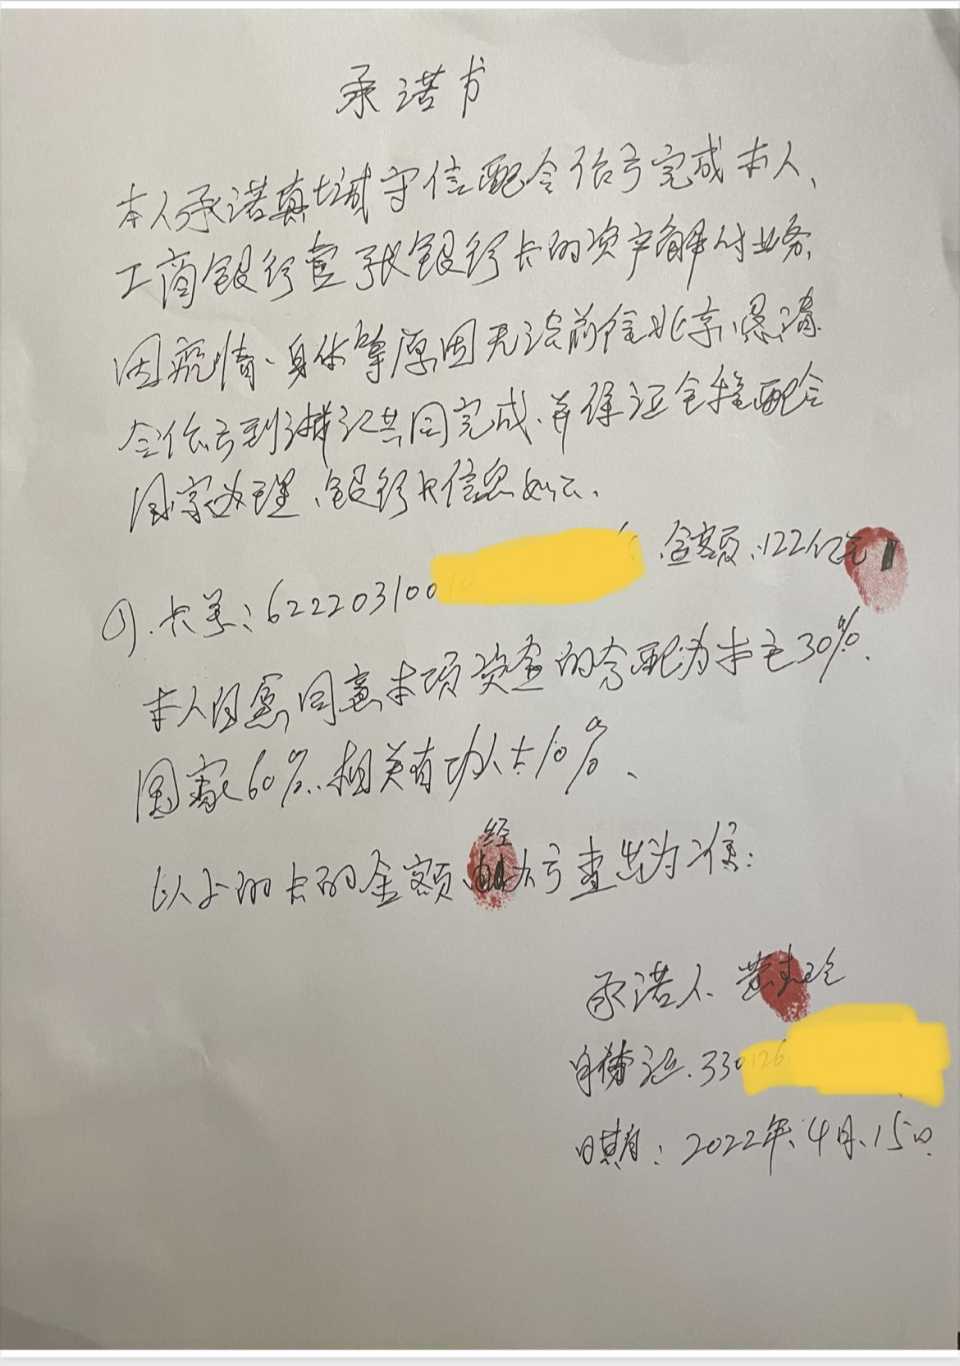 承诺书
本人承诺真诚守信配合你方完成本人、
工商银行壹张银行卡的资产解付业务,
因疫情、身体等原因无法前往北京,恳请
到浙江共同完成、并保证全程配合
国家办理、银行卡信息如下、
①.卡号:622203100 、金额、122亿元
本人自愿同意本项资金的分配为卡主30%、
国家60%、相关有功人士10%、
以上的卡的金额、经办方查出为准:
承诺人、黄
身份证、330126
日期:2022年、4月、15日